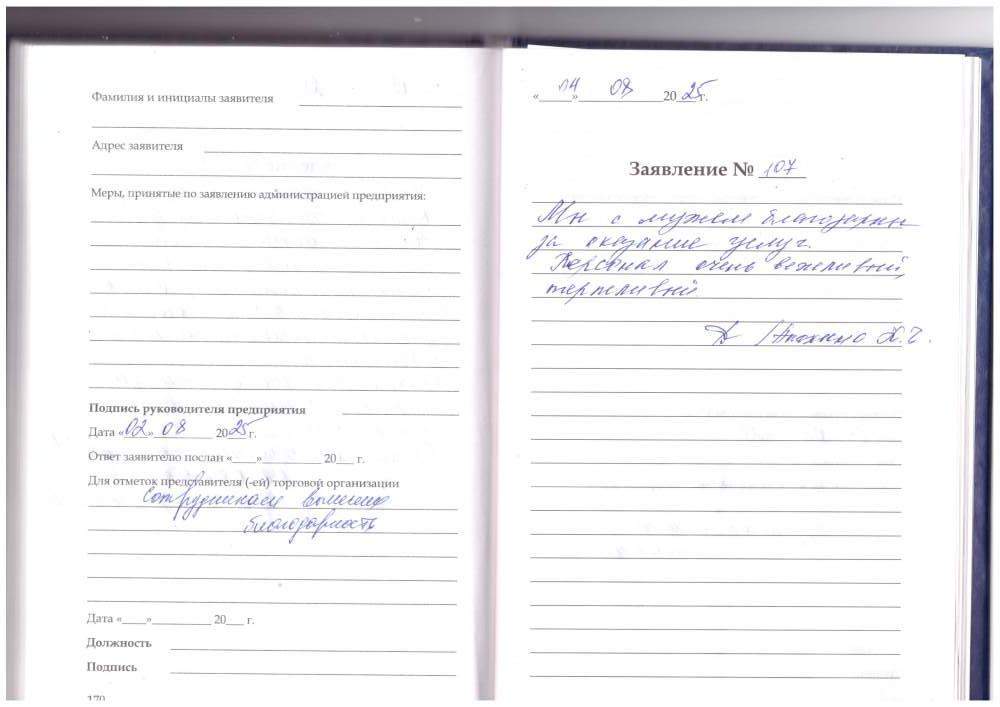 Фамилия и инициалы заявителя
Адрес заявителя
Меры, принятые по заявлению администрацией предприятия:
Подпись руководителя предприятия
Дата «02» 08 2025г.
Ответ заявителю послан «____»__________ 20___ г.
Для отметок представителя (-ей) торговой организации
сотрудникам
благодарность
Дата «____»__________ 20___ г.
Должность
Подпись
170
«14» 08 2025г.
Заявление № 107
Мы с мужем благодарны
за оказание услуг.
Персонал очень вежливый,
терпеливый